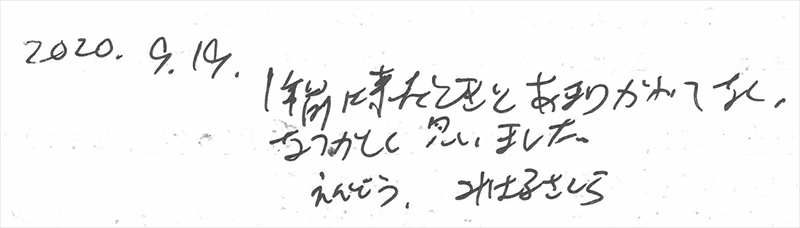 2020. 9. 19.
1年前に来たときとあまりかわてなく、
なつかしく思いました。
えんどう、みはるさくら